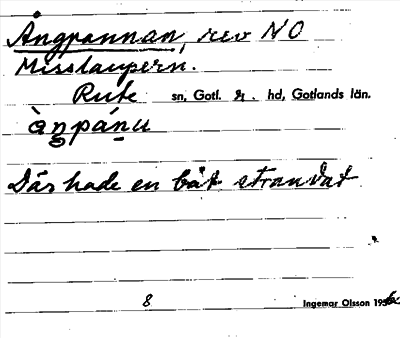 Ångpannan, rev NO
Misslaupern.
Rute sn, Gotl. n. hd, Gotlands län.
àŋpánu
Där hade en båt strandat
8 Ingemar Olsson 1956